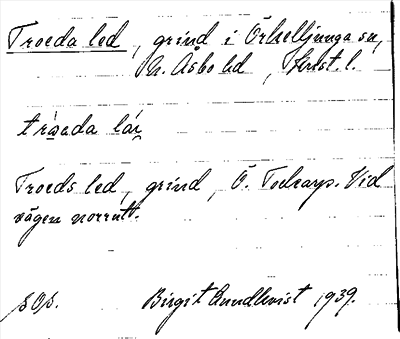 Troeda led, grind i Örkelljunga sn,
N. Åsbo hd, Krist. l.
tråada lái
Troeds led, grind, Ö. Toekarp. Vid
vägen norrut.
sOp. Birgit Lundkvist 1939.